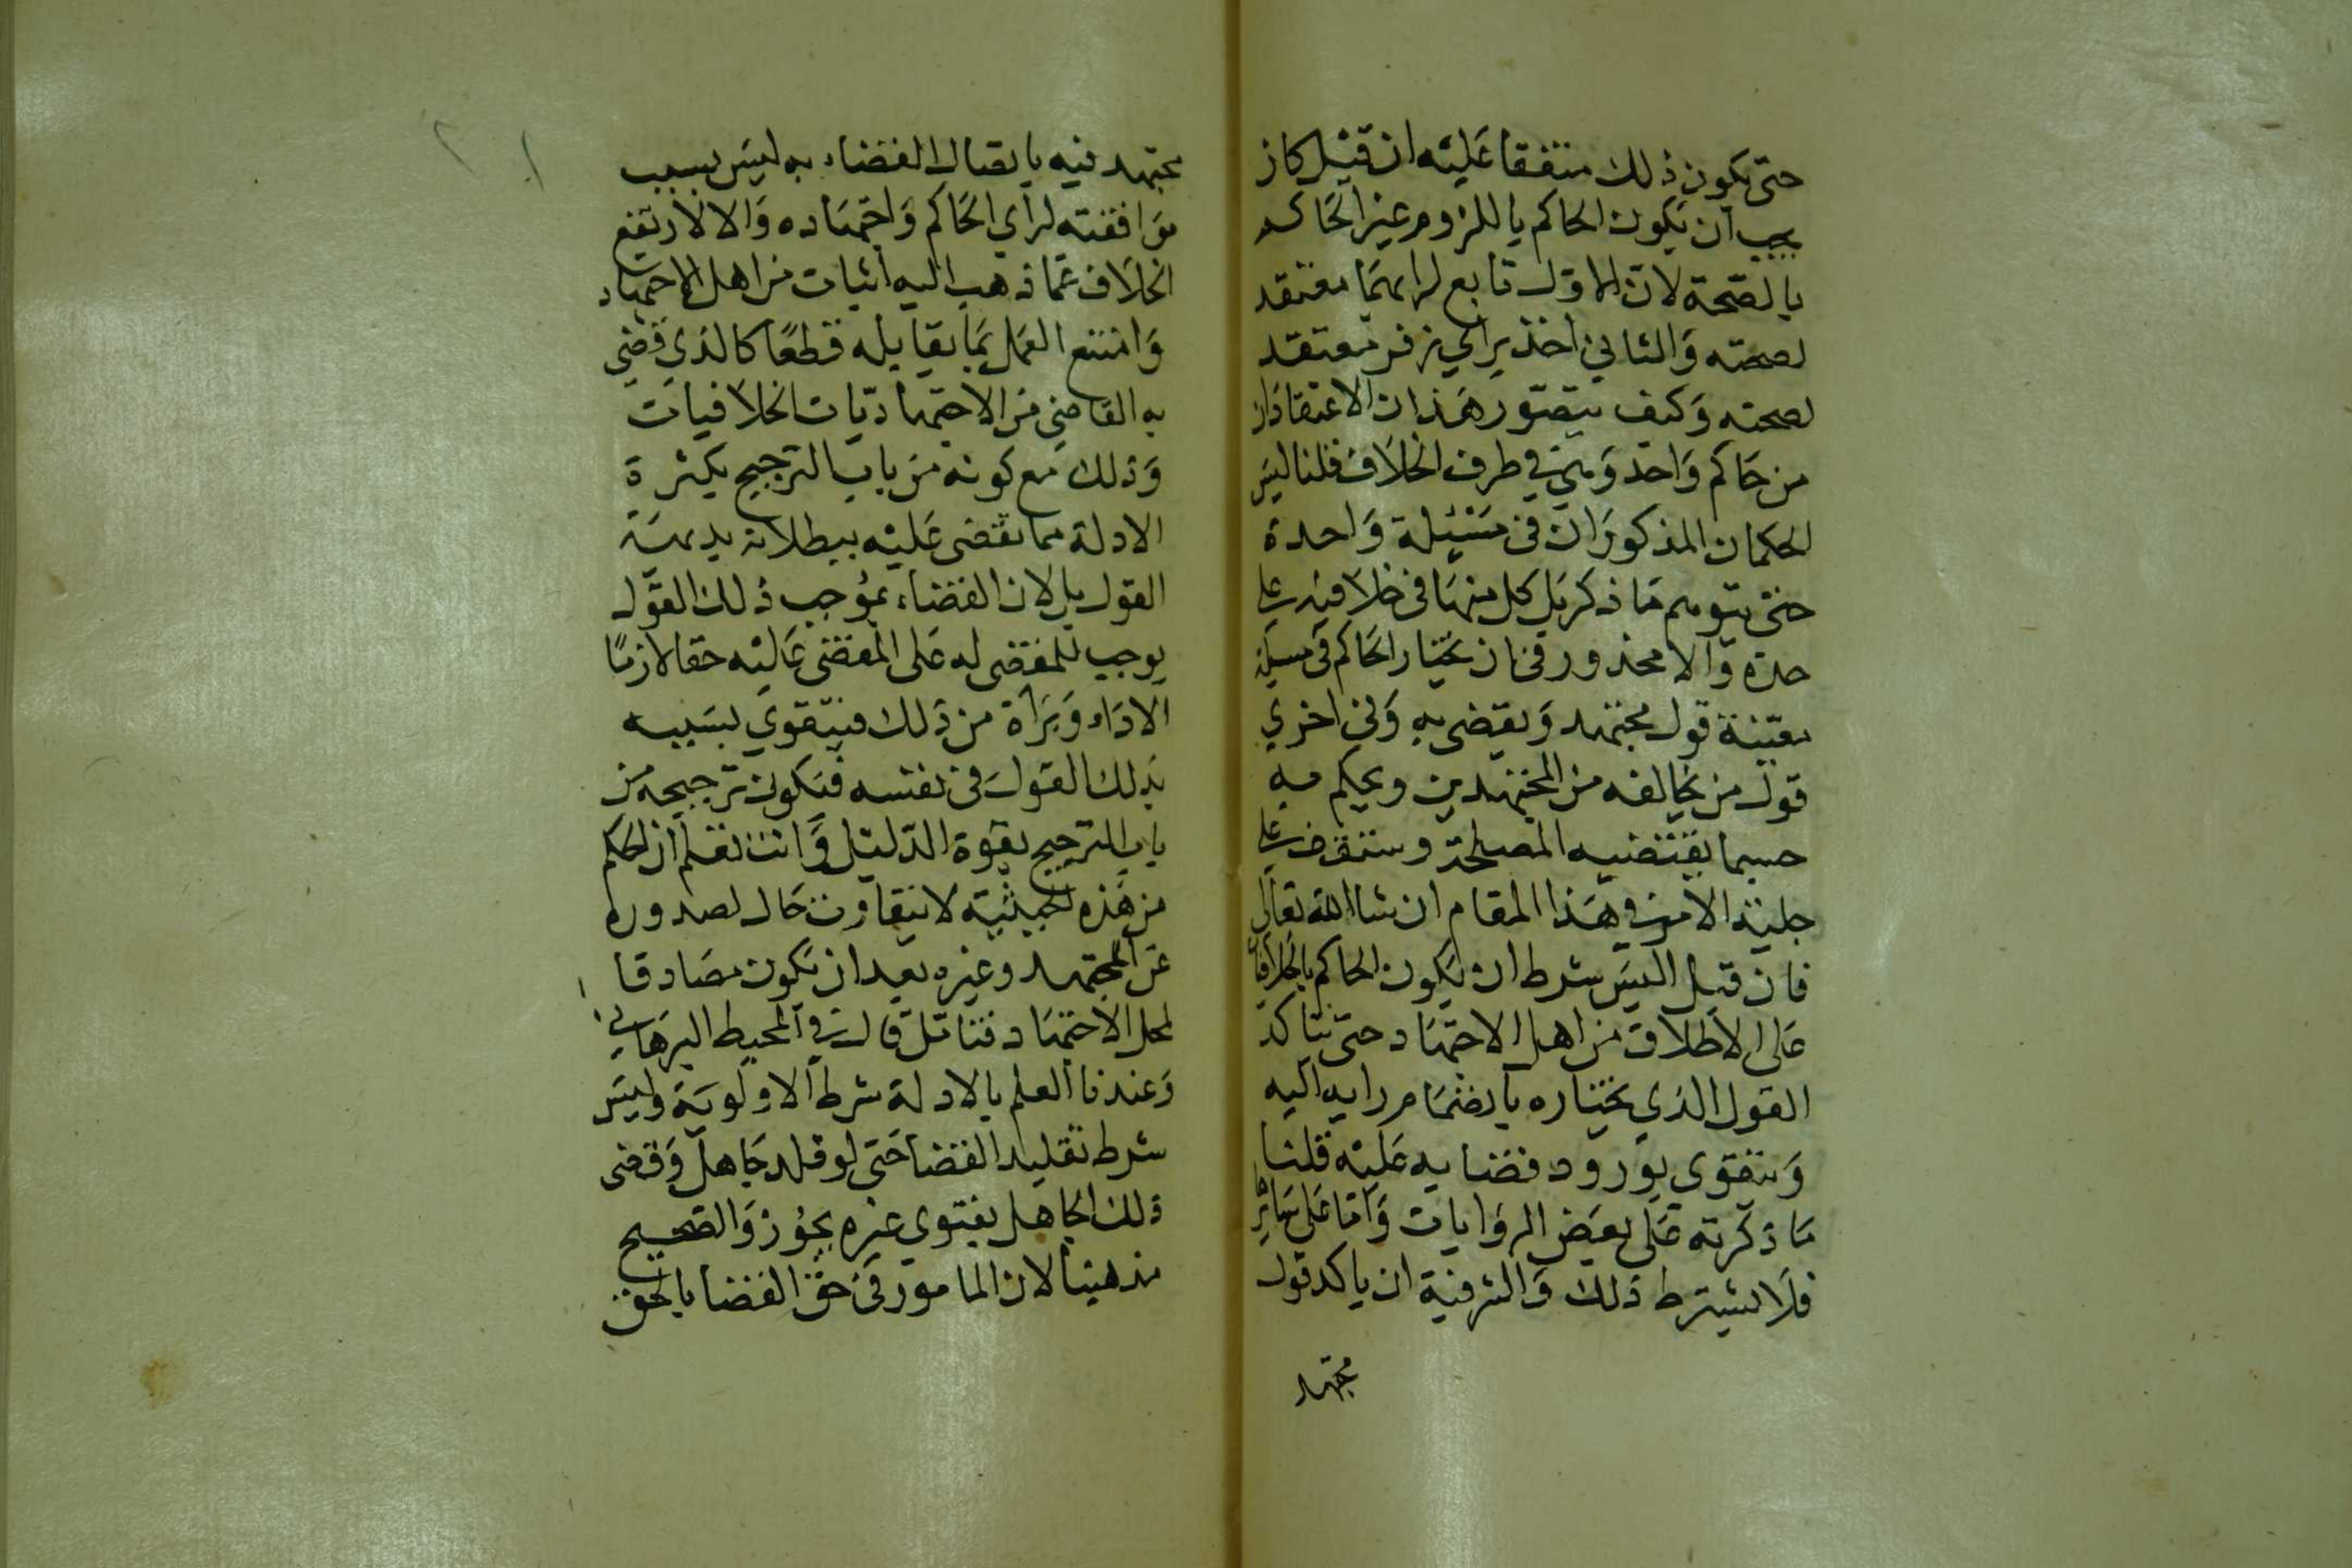 حتى يكون ذلك متفقا عليه ان قيل كان
يجب ان يكون الحاكم باللزوم غير الحاكم
بالصحة لان الاول تابع لرايهما معتقد
لصحته والثاني اخذ براي زفر معتقد
لصحته وكيف يتصور هذان الاعتقادان
من حاكم واحد وهي في طرف الخلاف قلنا ليس
الحكمان المذكوران في مسئلة واحدة
حتى يتوهم ما ذكر بل كل منهما في خلافية على
حدة والا محذور في ان يختار الحاكم في مسئلة
معينة قول مجتهد ويقضي به وفي اخرى
قول من يخالفه من المجتهدين ويحكم به
حسبما يقتضيه المصلحة وستقف على
جلية الامر في هذا المقام ان شا الله تعالى
فان قيل اليس شرط ان يكون الحاكم بالخلافيات
على الاطلاق من اهل الاجتهاد حتى يتاكد
القول الذي يختاره بانضمام رايه اليه
ويتقوى بورود قضايه عليه قلنا
ما ذكرته على بعض الروايات واما على سائرها
فلا يشترط ذلك والسر فيه ان تاكد قول
مجتهد
مجتهد فيه باتصال القضاء به ليس بسبب
موافقته لراي الحاكم واجتهاده والا لارتفع
الخلاف عما ذهب اليه اثبات من اهل الاجتهاد
وامتنع العمل بما يقابله قطعا كالذي قضي
به القاضي من الاجتهاديات الخلافيات
وذلك مع كونه من باب الترجيح بكثرة
الادلة مما يقضى عليه ببطلانه بديهة
القول بل لان القضاء بموجب ذلك القول
يوجب للمقضى له على المقضى عليه حقا لازما
الاداء وبراة من ذلك فيتقوى بسببه
بذلك القول في نفسه فيكون ترجيحه من
باب الترجيح بقوة الدليل وانت تعلم ان الحكم
من هذه الحيثية لا يتفاوت حال لصدوره
عن المجتهد وغيره بعد ان يكون مصادقا
لمحل الاجتهاد فتامل قال في المحيط البرهاني
وعندنا العلم بالادلة شرط الاولوية وليس
شرط تقليد القضا حتى لو قلد جاهل وقضى
ذلك الجاهل بفتوى غيره يجوز والصحيح
مذهبنا لان المامور في حق القضا بالحق